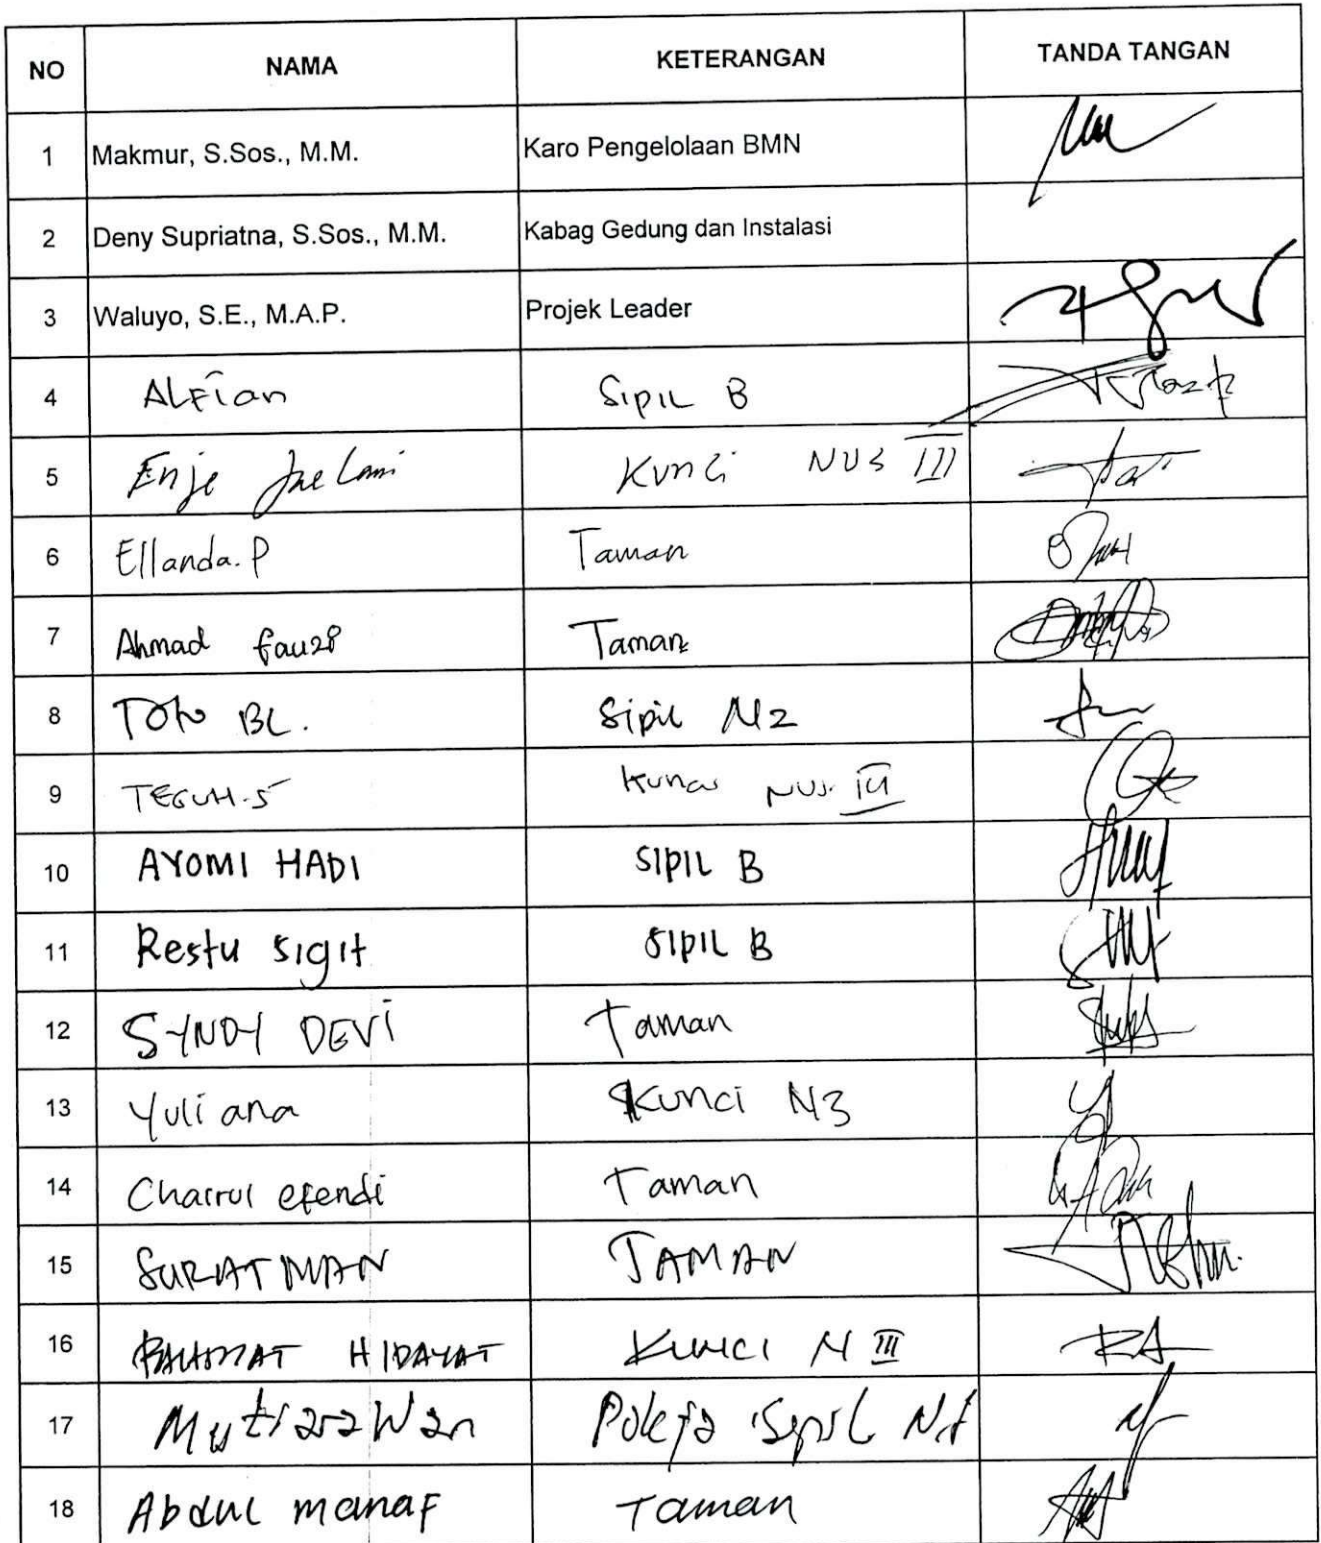 NO NAMA KETERANGAN TANDA TANGAN
1 Makmur, S.Sos., M.M. Karo Pengelolaan BMN
2 Deny Supriatna, S.Sos., M.M. Kabag Gedung dan Instalasi
3 Waluyo, S.E., M.A.P. Projek Leader
4 ALFian SipiL B
5 Enje Jaelani Kunci NUS III
6 Ellanda.P Taman
7 Ahmad fauzi Taman
8 Toto BL. Sipil N2
9 TEGUH.S Kunci NUS III
10 AYOMI HADI SIPIL B
11 Restu sigit SIPIL B
12 SYNDY DEVi Taman
13 Yuliana Kunci N3
14 Chairul efendi Taman
15 SURATMAN TAMAN
16 RAHMAT HIDAYAT Kunci N III
17 MutiaraWan Sipil
18 Abdul manaf Taman